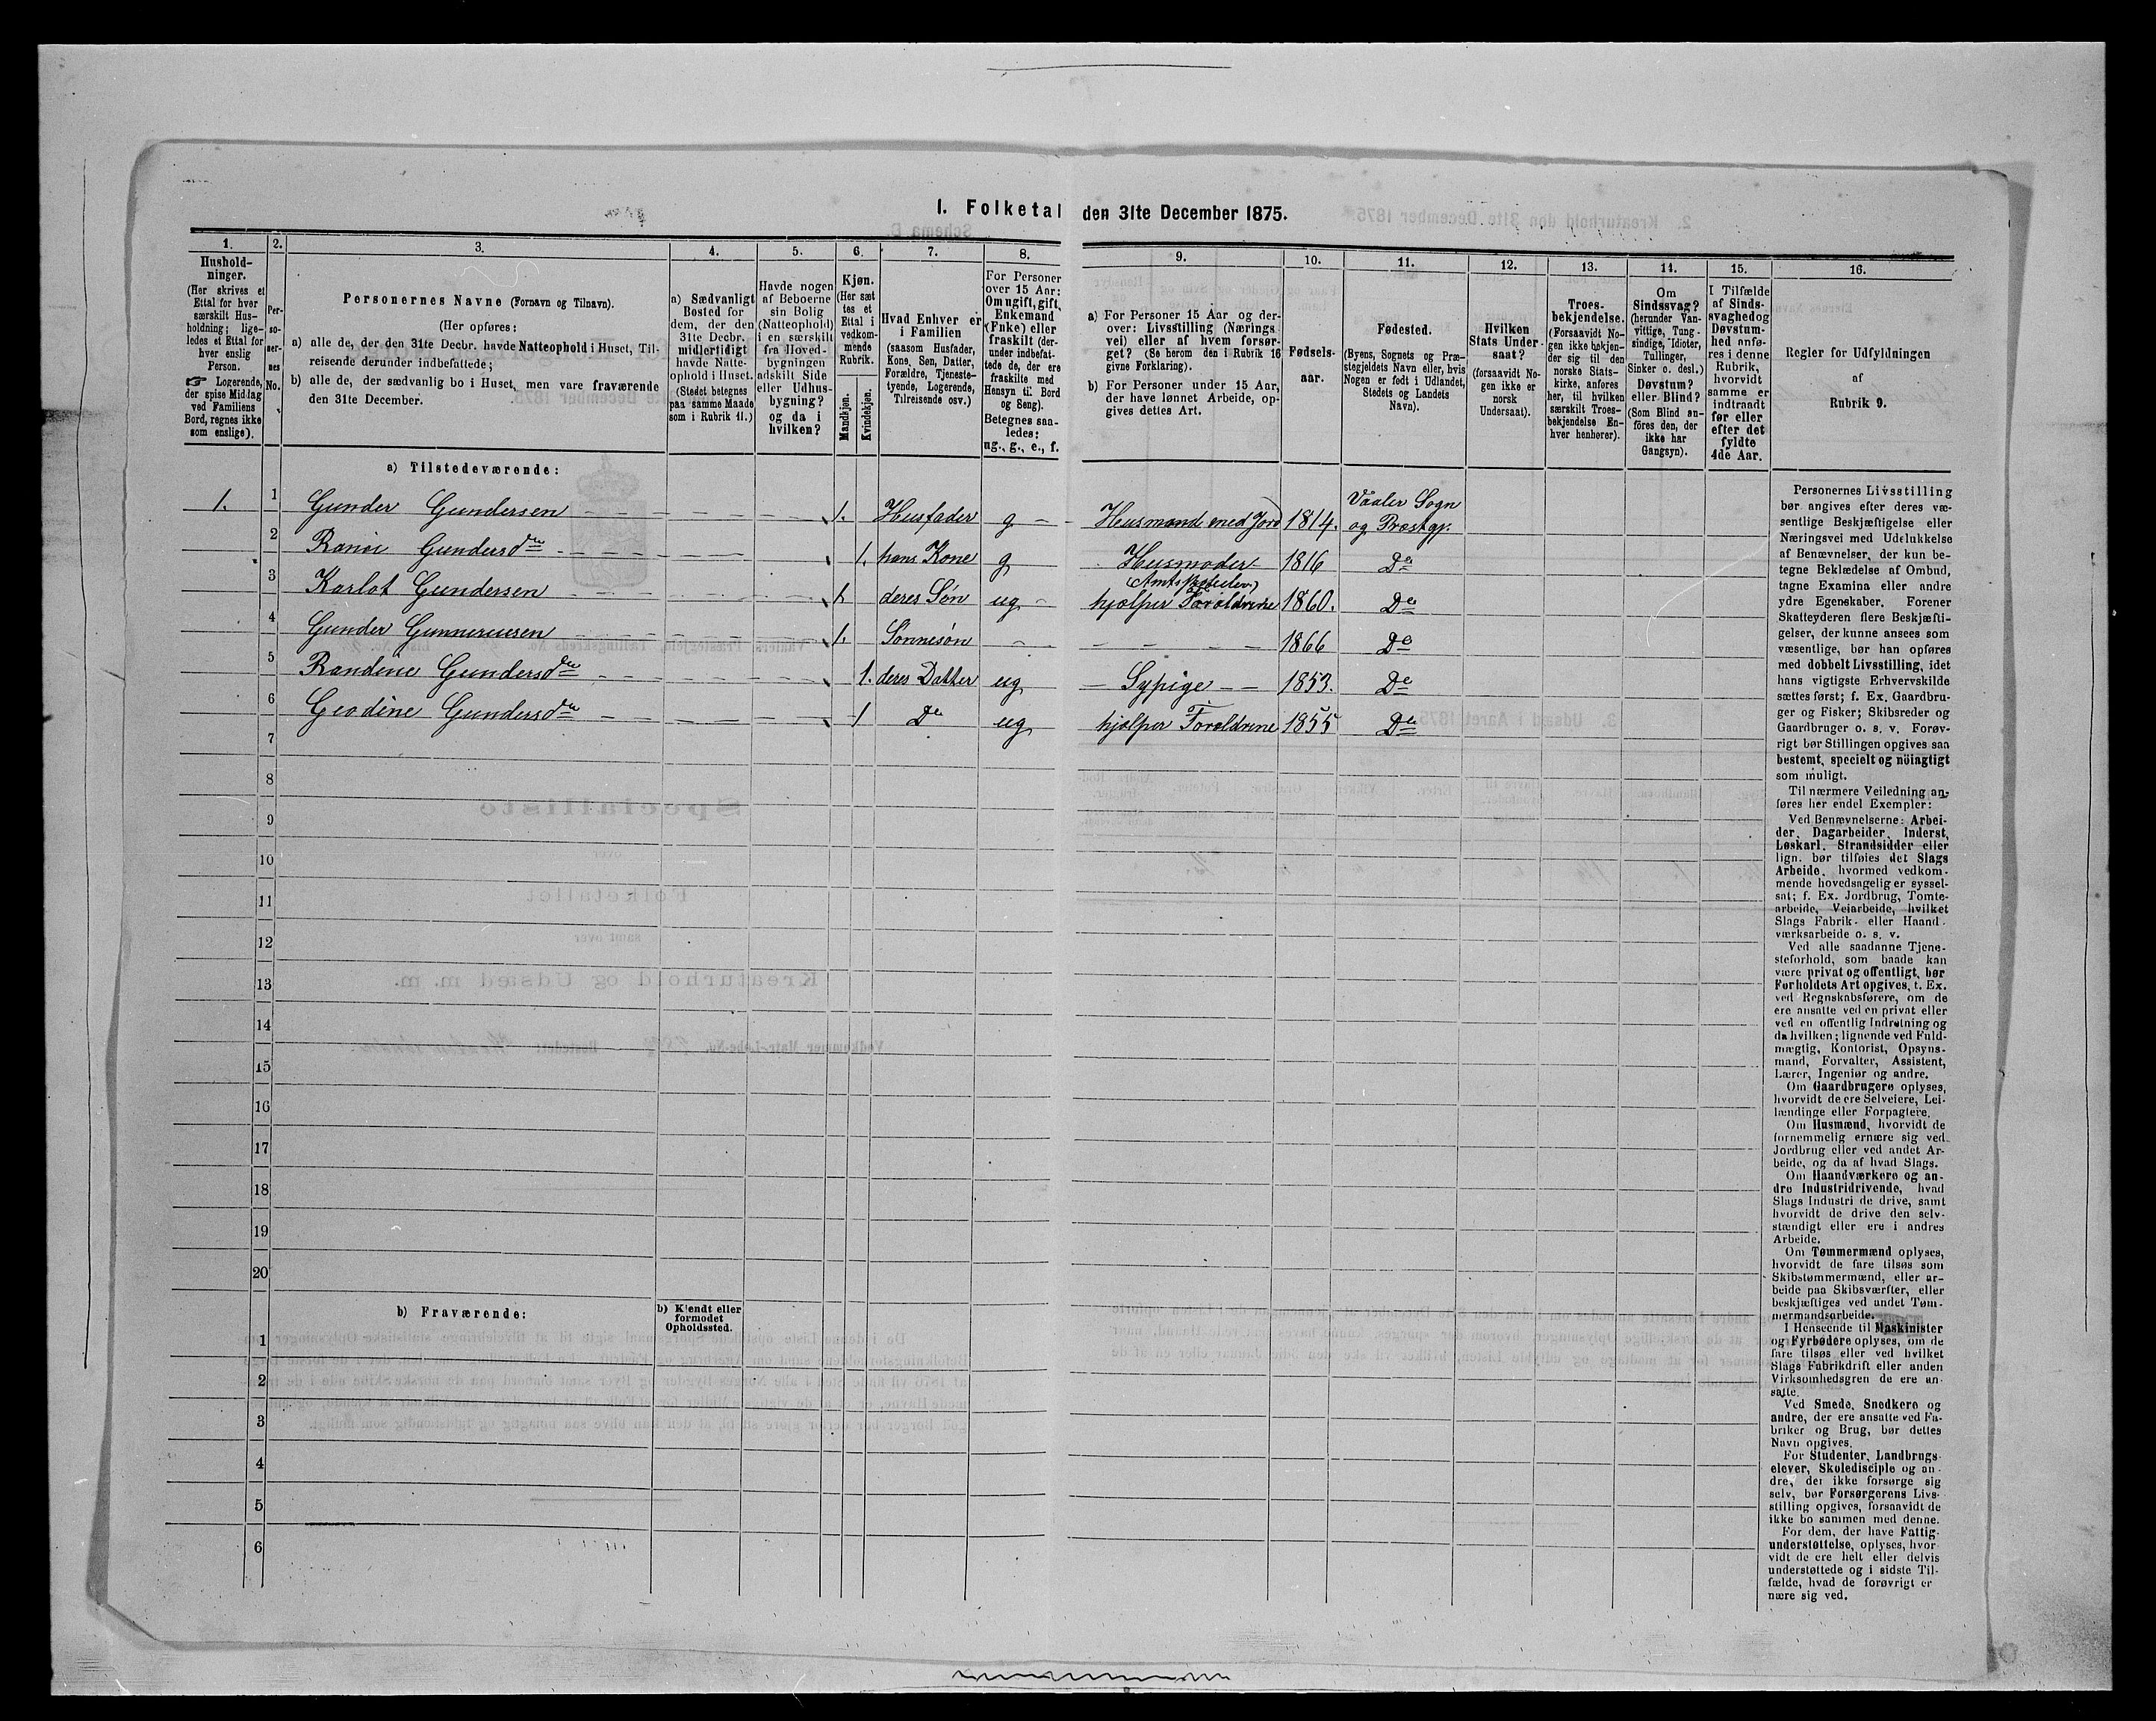 I. Folketal den 31te December 1875.
1.
Hushold-
ninger.
(Her skrives et
Ettal for hver
særskilt Hus-
holdning; lige-
ledes et Ettal for
hver enslig
Person.
☞ Logerende,
der spise Middag
ved Familiens
Bord, regnes ikke
som enslige).
2.
Per-
so-
ner-
nes
No.
3.
Personernes Navne (Fornavn og Tilnavn).
(Her opføres:
a) alle de, der den 31te Decbr. havde Natteophold i Huset, Til-
reisende derunder indbefattede;
b) alle de, der sædvanlig bo i Huset, men vare fraværende
den 31te December.
4.
a) Sædvanligt
Bosted for
dem, der den
31te Decbr.
midlertidigt
havde Natte-
ophold i Huset.
(Stedet betegnes
paa samme Maade
som i Rubrik 11.)
5.
Havde nogen
af Beboerne
sin Bolig
(Natteophold)
i en særskilt
fra Hoved-
bygningen
adskilt Side
eller Udhus-
bygning?
og da i
hvilken?
6.
Kjøn.
(Her sæt
tes et
Ettal i
vedkom-
mende
Rubrik.
Mandkjøn.
Kvindekjøn.
7.
Hvad Enhver er
i Familien
(saasom Husfader,
Kone, Søn, Datter,
Forældre, Tjeneste-
tyende, Logerende,
Tilreisende osv.)
8.
For Personer
over 15 Aar:
Om ugift, gift,
Enkemand
(Enke) eller
fraskilt (der-
under indbefat-
tede de, der ere
fraskilte med
Hensyn til Bord
og Seng).
Betegnes saa-
ledes:
ug., g., e., f.
9.
a) For Personer 15 Aar og der-
over: Livsstilling (Nærings
vei) eller af hvem forsør-
get? (Se herom den i Rubrik 16
givne Forklaring).
b) For Personer under 15 Aar,
der have lønnet Arbeide, op-
gives dettes Art.
10.
Fødsels-
aar.
11.
Fødested.
(Byens, Sognets og Præ-
stegjeldets Navn eller, hvis
Nogen er født i Udlandet,
Stedets og Landets
Navn).
12.
Hvilken
Stats Under-
saat?
(forsaavidt No-
gen ikke er
norsk
Undersaat).
13.
Troes-
bekjendelse.
(Forsaavidt No-
gen ikke bekjen-
der sig til den
norske Stats-
kirke, anføres
her, til hvilken
særskilt Troes-
bekjendelse En-
hver henhører).
14.
Om
Sindssvag?
(herunder Van-
vittige, Tung-
sindige, Idioter,
Tullinger,
Sinker o. desl.)
Døvstum?
eller Blind?
(Som Blind an-
føres den, der
ikke har
Gangsyn).
15.
I Tilfælde
af Sinds-
svaghed og
Døvstum-
hed anfø-
res i denne
Rubrik,
hvorvidt
samme er
indtraadt
før eller
efter det
fyldte
4de Aar.
16.
Regler for Udfyldningen
af
Rubrik 9.
a) Tilstedeværende:
1. 1 Gunder Gundersen 1. Husfader g Husmand med Jord 1814. Vaaler Sogn og Præstgj.
2 Gundersdtr 1. hans Kone g Husmoder 1816 Do
3 Karlot Gundersen 1 deres Søn ug hjælper Forældrene 1860. Do
4 Gunder Gunnerusen 1. Sønnesøn 1866 Do
5 Randine Gundersdtr 1. deres Datter ug Sypige 1853. Do
6 Gundersdtr 1 Do ug hjælper Forældrene 1855 Do
7
8
9
10
11
12
13
14
15
16
17
18
19
20
b) Fraværende:
b) Kjendt eller
formodet
Opholdssted.
1
2
3
4
5
6
Personernes Livsstilling
bør angives efter deres væ-
sentlige Beskjæftigelse eller
Næringsvei med Udelukkelse
af Benævnelser, der kun be-
tegne Beklædelse af Ombud,
tagne Examina eller andre
ydre Egenskaber. Forener
Skatteyderen flere Beskjæfti-
gelser, der kunne ansees som
væsentlige, bør han opføres
med dobbelt Livsstilling, idet
hans vigtigste Erhvervskilde
sættes først; f. Ex. Gaardbru-
ger og Fisker; Skibsreder og
Gaardbruger o. s. v. Forøv-
rigt bør Stillingen opgives saa
bestemt, specielt og nöiagtigt
som muligt.
Til nærmere Veiledning an-
føres her endel Exempler:
Ved Benævnelserne: Arbei-
der, Dagarbeider, Inderst,
Løskarl, Strandsidder eller
lign. bør tilføies det Slags
Arbeide, hvormed vedkom-
mende hovedsagelig er syssel-
sat; f. Ex. Jordbrug, Tomte-
arbeide, Veiarbeide, hvilket
Slags Fabrik- eller Haand-
værksarbeide o. s. v.
Ved alle saadanne Tjene-
steforhold, som baade kan
være privat og offentligt, bør
Forholdets Art opgives, t. Ex.
ved Regnskabsførere, om de
ere ansatte ved en privat eller
ved en offentlig Indretning og
da hvilken; lignende ved Fuld-
mægtig, Kontorist, Opsyns-
mand, Forvalter, Assistent,
Lærer, Ingeniør og andre.
Om Gaardbrugere oplyses,
hvorvidt de ere Selveiere, Lei-
lændinge eller Forpagtere.
Om Husmænd, hvorvidt de
fornemmelig ernære sig ved
Jordbrug eller ved andet Ar-
beide, og da af hvad Slags.
Om Haandværkere og an-
dre Industridrivende, hvad
Slags Industri de drive, samt
hvorvidt de drive den selv-
stændigt eller ere i andres
Arbeide.
Om Tømmermænd oplyses,
hvorvidt de fare tilsøs som
Skibstømmermænd, eller ar-
beide paa Skibsværfter, eller
beskjæftiges ved andet Tøm-
mermandsarbeide.
I Henseende til Maskinister
og Fyrbødere oplyses, om de
fare tilsøs eller ved hvilket
Slags Fabrikdrift eller anden
Virksomhedsgren de ere an-
satte.
Ved Smede, Snedkere og
andre, der ere ansatte ved Fa-
briker og Brug, bør dettes
Navn opgives.
For Studenter, Landbrugs-
elever, Skoledisciple og an-
dre, der ikke forsørge sig
selv, bør Forsørgerens Livs-
stilling opgives, forsaavidt de
ikke bo sammen med denne.
For dem, der have Fattig-
understøttelse, oplyses, hvor-
vidt de ere helt eller delvis
understøttede og i sidste Til-
fælde, hvad de forøvrigt er
nære sig ved.